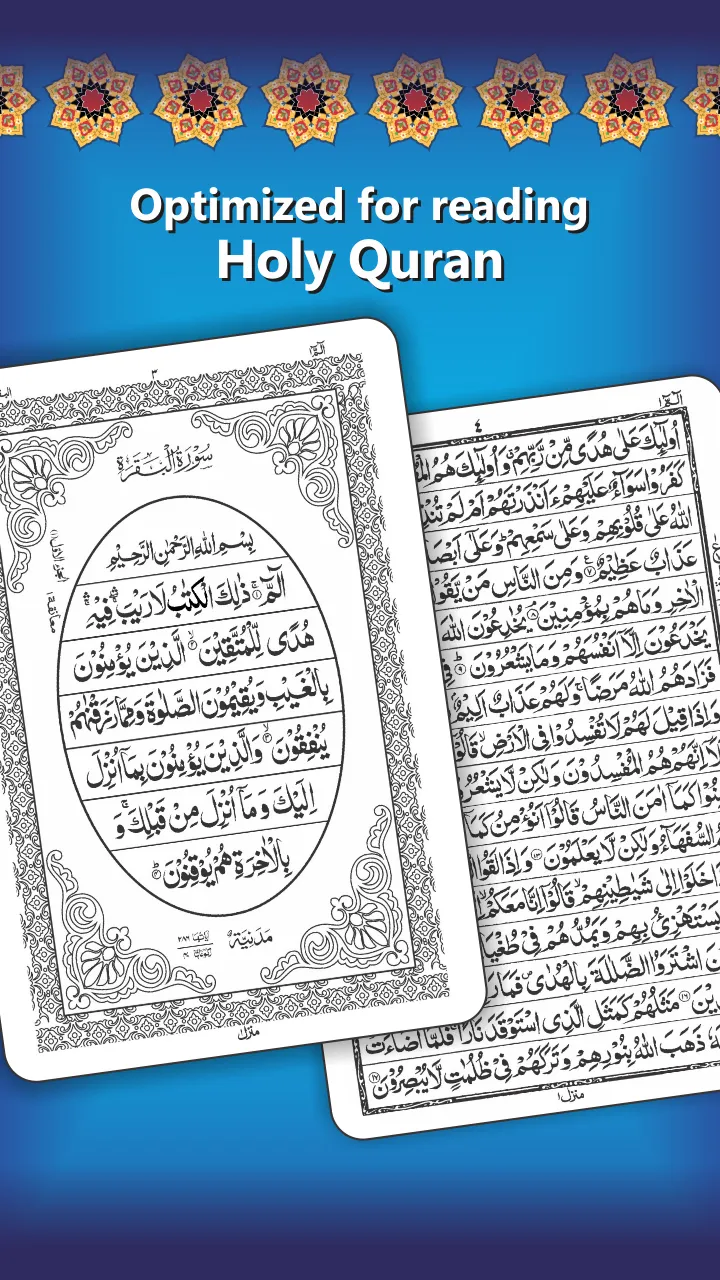 Optimized for reading
Holy Quran
٣
الٓمّٓ
سُوْرَةُ الْبَقَرَةِ
بِسْمِ اللّٰهِ الرَّحْمٰنِ الرَّحِيْمِ
الٓمّٓ ۚ‏ ۱ ذٰلِكَ الْكِتٰبُ لَا رَيْبَ ۛۖ فِيْهِ ۛۚ
هُدًى لِّلْمُتَّقِيْنَ ۙ‏ ۲ الَّذِيْنَ يُؤْمِنُوْنَ
بِالْغَيْبِ وَيُقِيْمُوْنَ الصَّلٰوةَ وَمِمَّا رَزَقْنٰهُمْ
يُنْفِقُوْنَ ۙ‏ ۳ وَالَّذِيْنَ يُؤْمِنُوْنَ بِمَآ اُنْزِلَ
اِلَيْكَ وَمَآ اُنْزِلَ مِنْ قَبْلِكَ ۚ وَ
بِالْاٰخِرَةِ هُمْ يُوْقِنُوْنَ ؕ‏ ۴
مَدَنِيَّةٌ
منزل ۱
معانقة ۱
٤
الٓمّٓ
اُولٰٓئِكَ عَلٰى هُدًى مِّنْ رَّبِّهِمْ ۙ وَاُولٰٓئِكَ هُمُ
كَفَرُوْا سَوَآءٌ عَلَيْهِمْ ءَاَنْذَرْتَهُمْ اَمْ لَمْ
اللّٰهُ عَلٰى قُلُوْبِهِمْ وَعَلٰى سَمْعِهِمْ ؕ وَعَلٰٓى
عَذَابٌ عَظِيْمٌ ۷ وَمِنَ النَّاسِ مَنْ يَّقُوْ
الْاٰخِرِ وَمَا هُمْ بِمُؤْمِنِيْنَ ۘ‏ ۸ يُخٰدِعُوْنَ اللّٰهَ
يَخْدَعُوْنَ اِلَّآ اَنْفُسَهُمْ وَمَا يَشْعُرُوْنَ ؕ‏ ۹
فَزَادَهُمُ اللّٰهُ مَرَضًا ۚ وَلَهُمْ عَذَابٌ اَلِيْمٌ
وَاِذَا قِيْلَ لَهُمْ لَا تُفْسِدُوْا فِى الْاَرْضِ ۙ
اِنَّهُمْ هُمُ الْمُفْسِدُوْنَ وَلٰكِنْ لَّا
كَمَآ اٰمَنَ النَّاسُ قَالُوْٓا اَنُؤْمِنُ
السُّفَهَآءُ وَلٰكِنْ لَّا يَعْلَمُوْنَ ۱۳ وَاِذَا
خَلَوْا اِلٰى شَيٰطِيْنِهِمْ ۙ قَالُوْٓا اِنَّا مَعَكُمْ
يَسْتَهْزِئُ بِهِمْ وَيَمُدُّهُمْ فِىْ
اشْتَرَوُا الضَّلٰلَةَ بِالْهُدٰى
۱۶ مَثَلُهُمْ كَمَثَلِ الَّذِى اسْتَوْقَدَ نَارًا ۚ فَلَمَّآ اَضَآءَتْ
ذَهَبَ اللّٰهُ بِنُوْرِهِمْ وَتَرَكَهُمْ فِىْ ظُلُمٰتٍ لَّا يُبْصِرُوْنَ ۱۷
منزل ۱